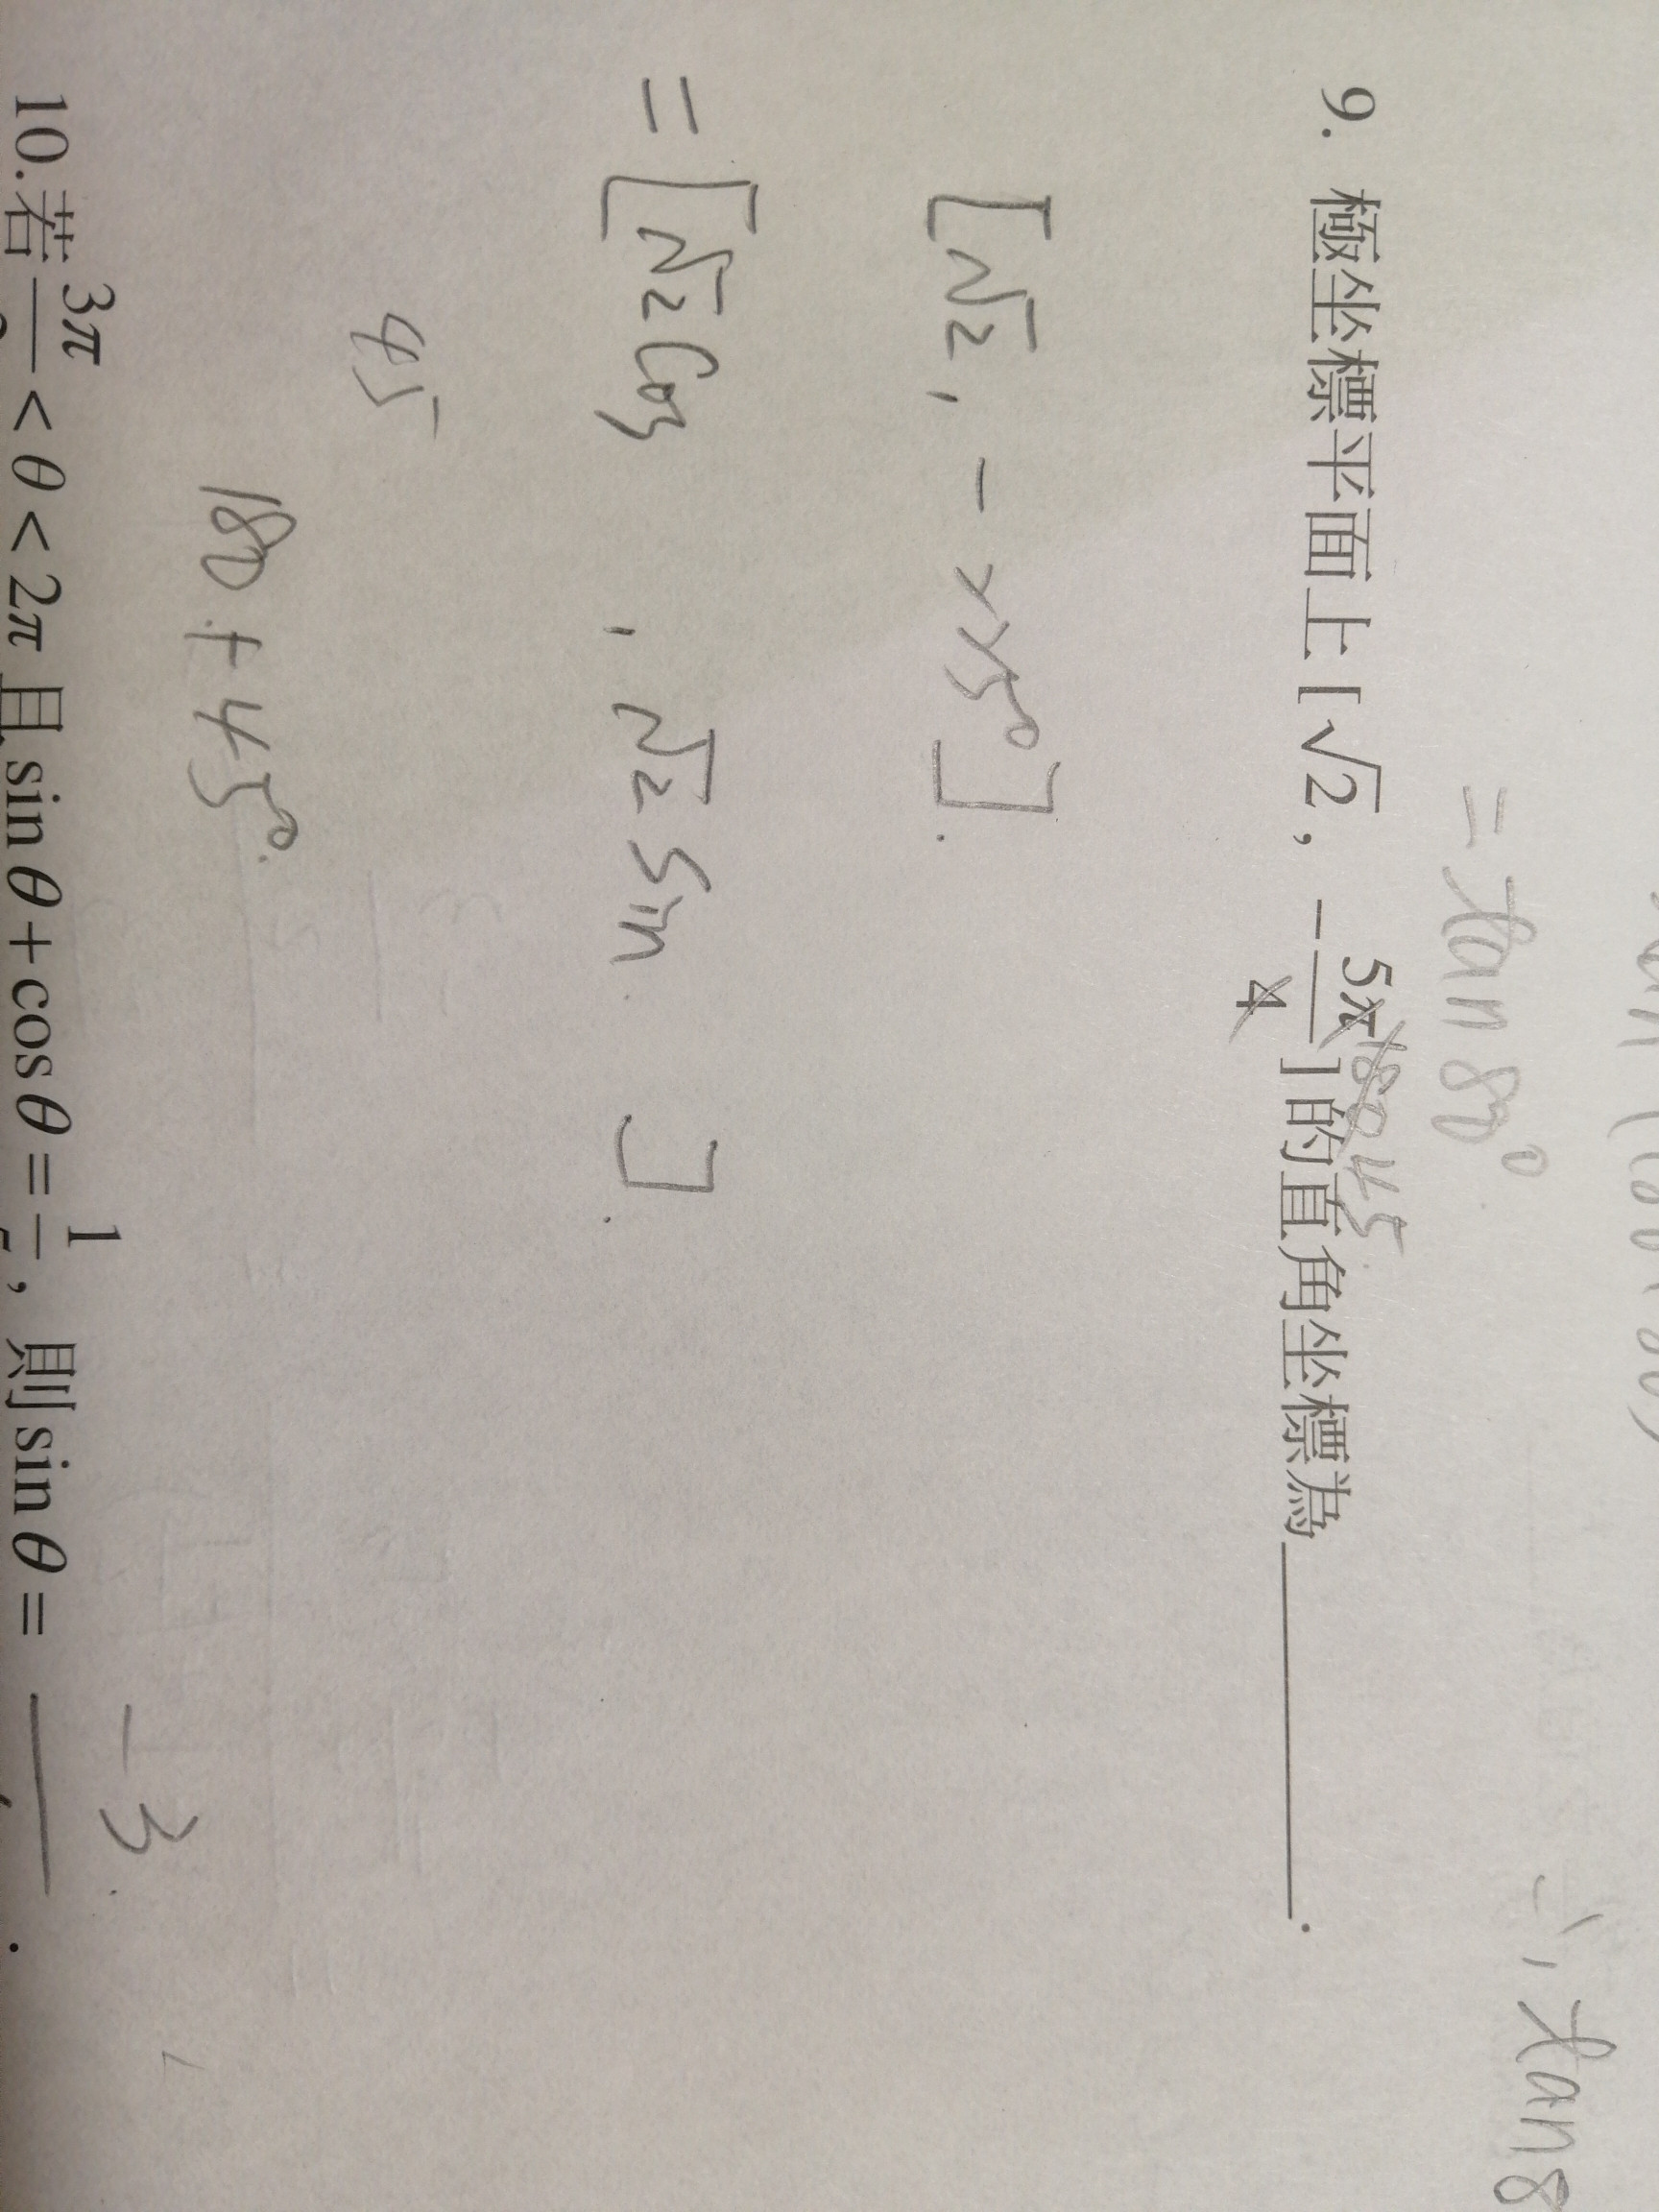 = tan 80°
∴ tan 8
9. 極坐標平面上[√2, -5π/4]的直角坐標為________.
180 45
[√2, -225°].
= [√2 cos , √2 sin ].
45
180 + 45°.
-3
10.若 3π/ < θ < 2π 且 sin θ + cos θ = 1/ , 則 sin θ = ________.